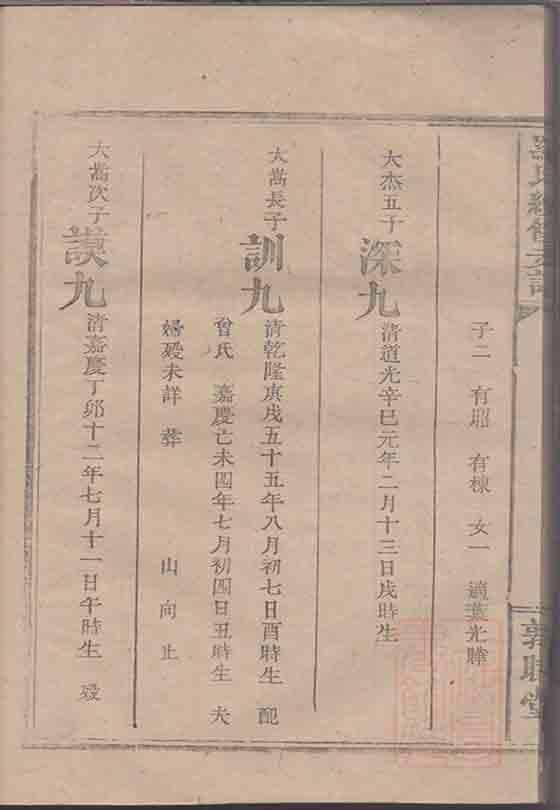 氏續修支譜
子二 有昭 有棟 女一 適葉光曄
大杰五子 深九 清道光辛巳元年二月十三日戌時生
大嵩長子 訓九 清乾隆庚戌五十五年八月初七日酉時生 配
曾氏 嘉慶亡未四年七月初四日丑時生 夫
婦歿未詳 葬 山 向 止
大嵩次子 謨九 清嘉慶丁卯十二年七月十一日午時生 歿
敦睦堂